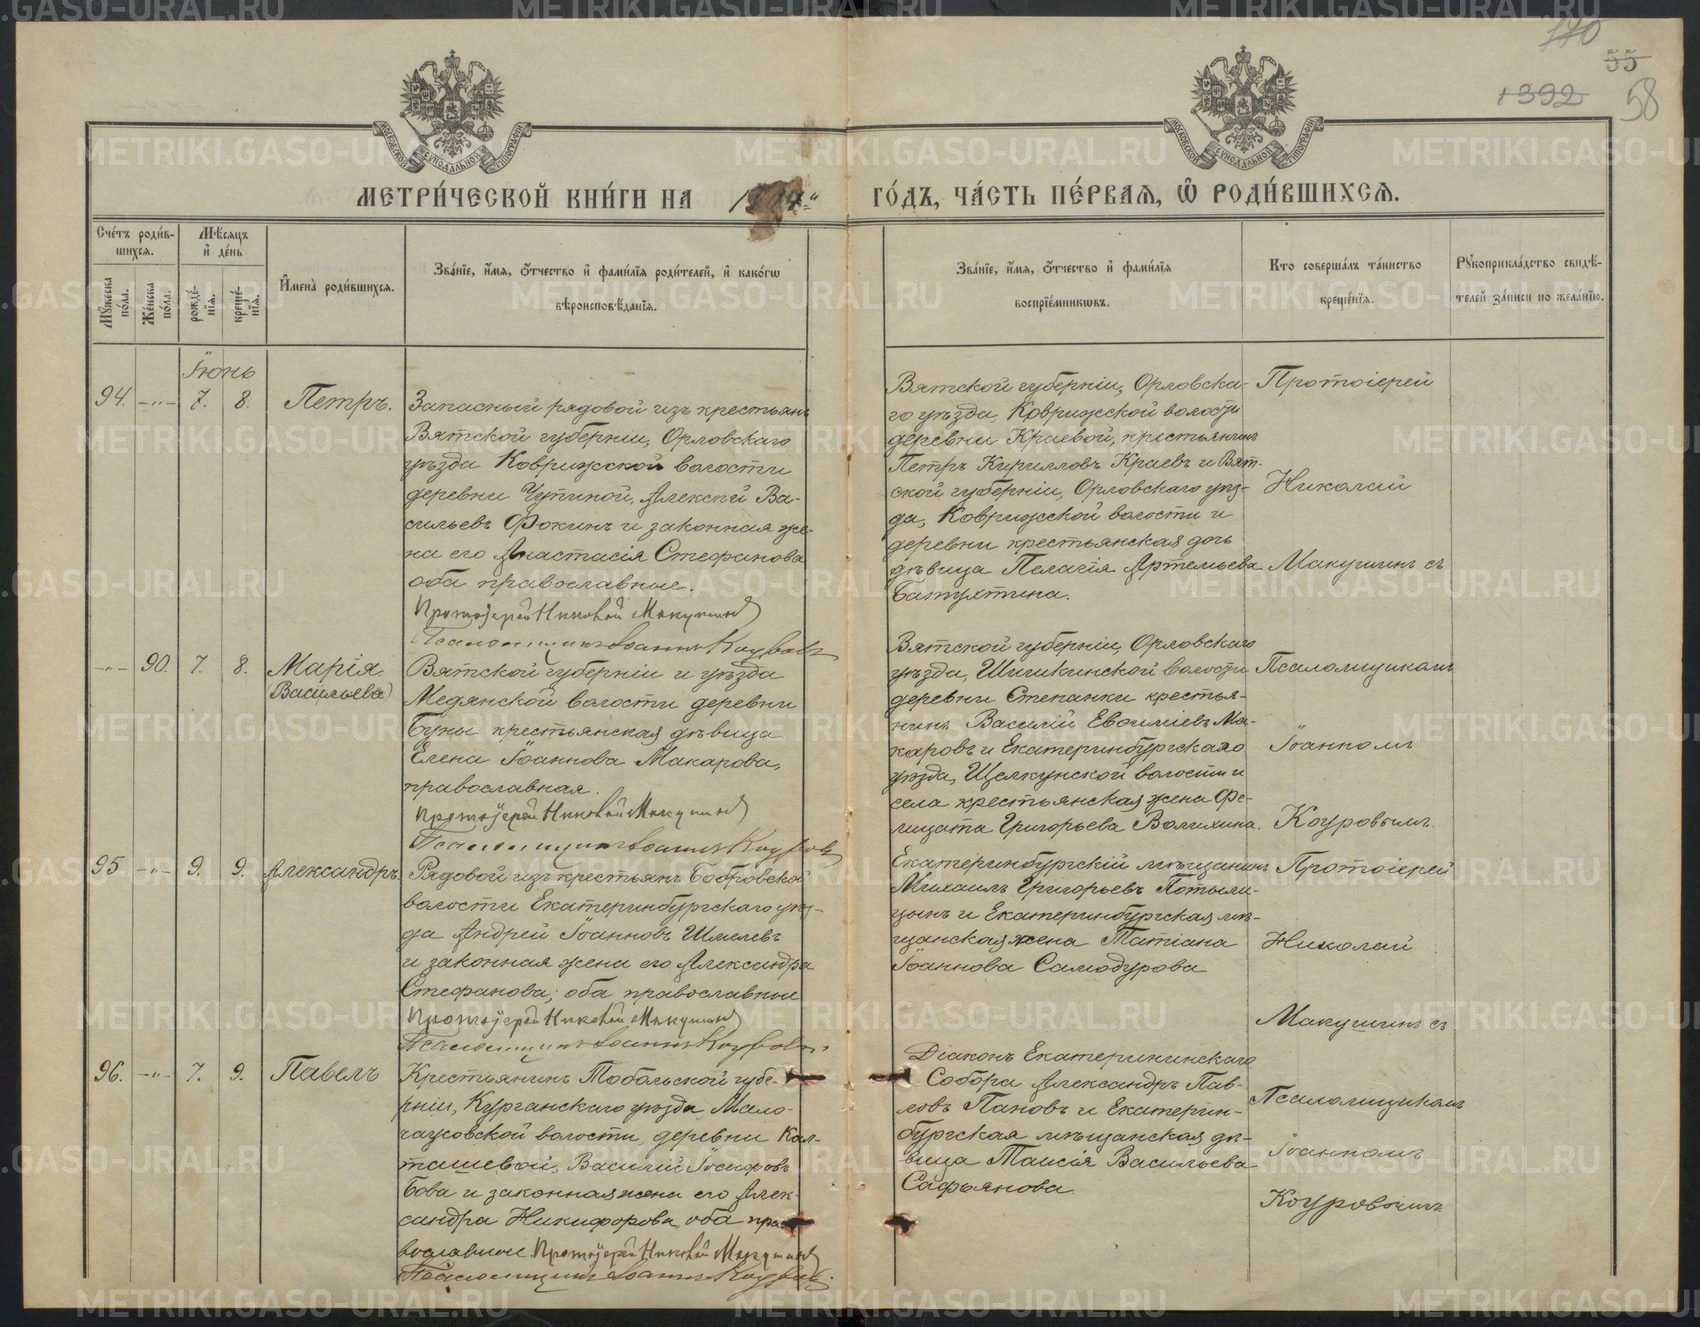 170
55
1392
58
МЕТРИ́ЧЕСКОЙ КНИ́ГИ НА
ГО́ДЪ, ЧА́СТЬ ПЕ́РВАЯ, Ѿ РОДИ́ВШИХСЯ.
Сче́тъ роди́в-
шихся.
Мѣсяцъ
и де́нь
Мужеска по́ла.
Же́нска по́ла.
рожде́-
нія.
креще́-
нія.
Имена̀ роди́вшихся.
Зва́ніе, и́мя, о́тчество и фами́лія роди́телей, и како́гѡ
вѣроисповѣ́данія.
Зва́ніе, и́мя, о́тчество и фами́лія
воспріе́мниковъ.
Кто соверша́лъ та́инство
креще́нія.
Рукоприкла́дство свидѣ́-
телей за́писи по жела́нію.
Іюнь
94. -"- 7. 8. Петръ.
Запасный рядовой изъ крестьянъ
Вятской губерніи, Орловскаго
уѣзда Коврижской волости
деревни Чупиной, Алексѣй Ва-
сильевъ Фокинъ и законная же-
на его Анастасія Стефанова
оба православные.
Протоіерей Николай Макушинъ
Псаломщикъ Іоаннъ Коуровъ
Вятской губерніи, Орловска-
го уѣзда, Коврижской волости
деревни Краевой, крестьянинъ
Петръ Кирилловъ Краевъ и Вят-
ской губерніи, Орловскаго уѣз-
да, Коврижской волости и
деревни крестьянская дочь
дѣвица Пелагія Артемьева
Батухтина.
Протоіерей
Николай
Макушинъ съ
-"- 90. 7. 8. Марія
(Васильева)
Вятской губерніи и уѣзда
Медянской волости деревни
Буны крестьянская дѣвица
Елена Іоаннова Макарова,
православная.
Протоіерей Николай Макушинъ
Псаломщикъ Іоаннъ Коуровъ
Вятской губерніи, Орловскаго
уѣзда, Шишкинской волости
деревни Степанки крестья-
нинъ Василій Евѳиміевъ Ма-
каровъ и Екатеринбургскаго
уѣзда, Щелкунской волости и
села крестьянская жена Фе-
лицата Григорьева Валихина.
Псаломщикомъ
Іоанномъ
Коуровымъ.
95 -"- 9. 9. Александръ
Рядовой изъ крестьянъ Бобровской
волости Екатеринбургскаго уѣз-
да Андрей Іоанновъ Шмелевъ
и законная жена его Александра
Стефанова; оба православные
Протоіерей Николай Макушинъ
Псаломщикъ Іоаннъ Коуровъ.
Екатеринбургскій мѣщанинъ
Михаилъ Григорьевъ Потыли-
цынъ и Екатеринбургская мѣ-
щанская жена Татіана
Іоаннова Самодурова
Протоіерей
Николай
Макушинъ съ
96. -"- 7. 9. Павелъ
Крестьянинъ Тобольской губе-
рніи, Курганскаго уѣзда, Мало-
чаусовской волости деревни Кал-
ташевой, Василій Іосифовъ
Бова и законная жена его Алек-
сандра Никифорова, оба пра-
вославные Протоіерей Николай Макушинъ
Псаломщикъ Іоаннъ Коуровъ.
Діаконъ Екатерининскаго
Собора Александръ Пав-
ловъ Пановъ и Екатерин-
бургская мѣщанская дѣ-
вица Таисія Васильева
Сафьянова
Псаломщикомъ
Іоанномъ
Коуровымъ
METRIKI.GASO-URAL.RU